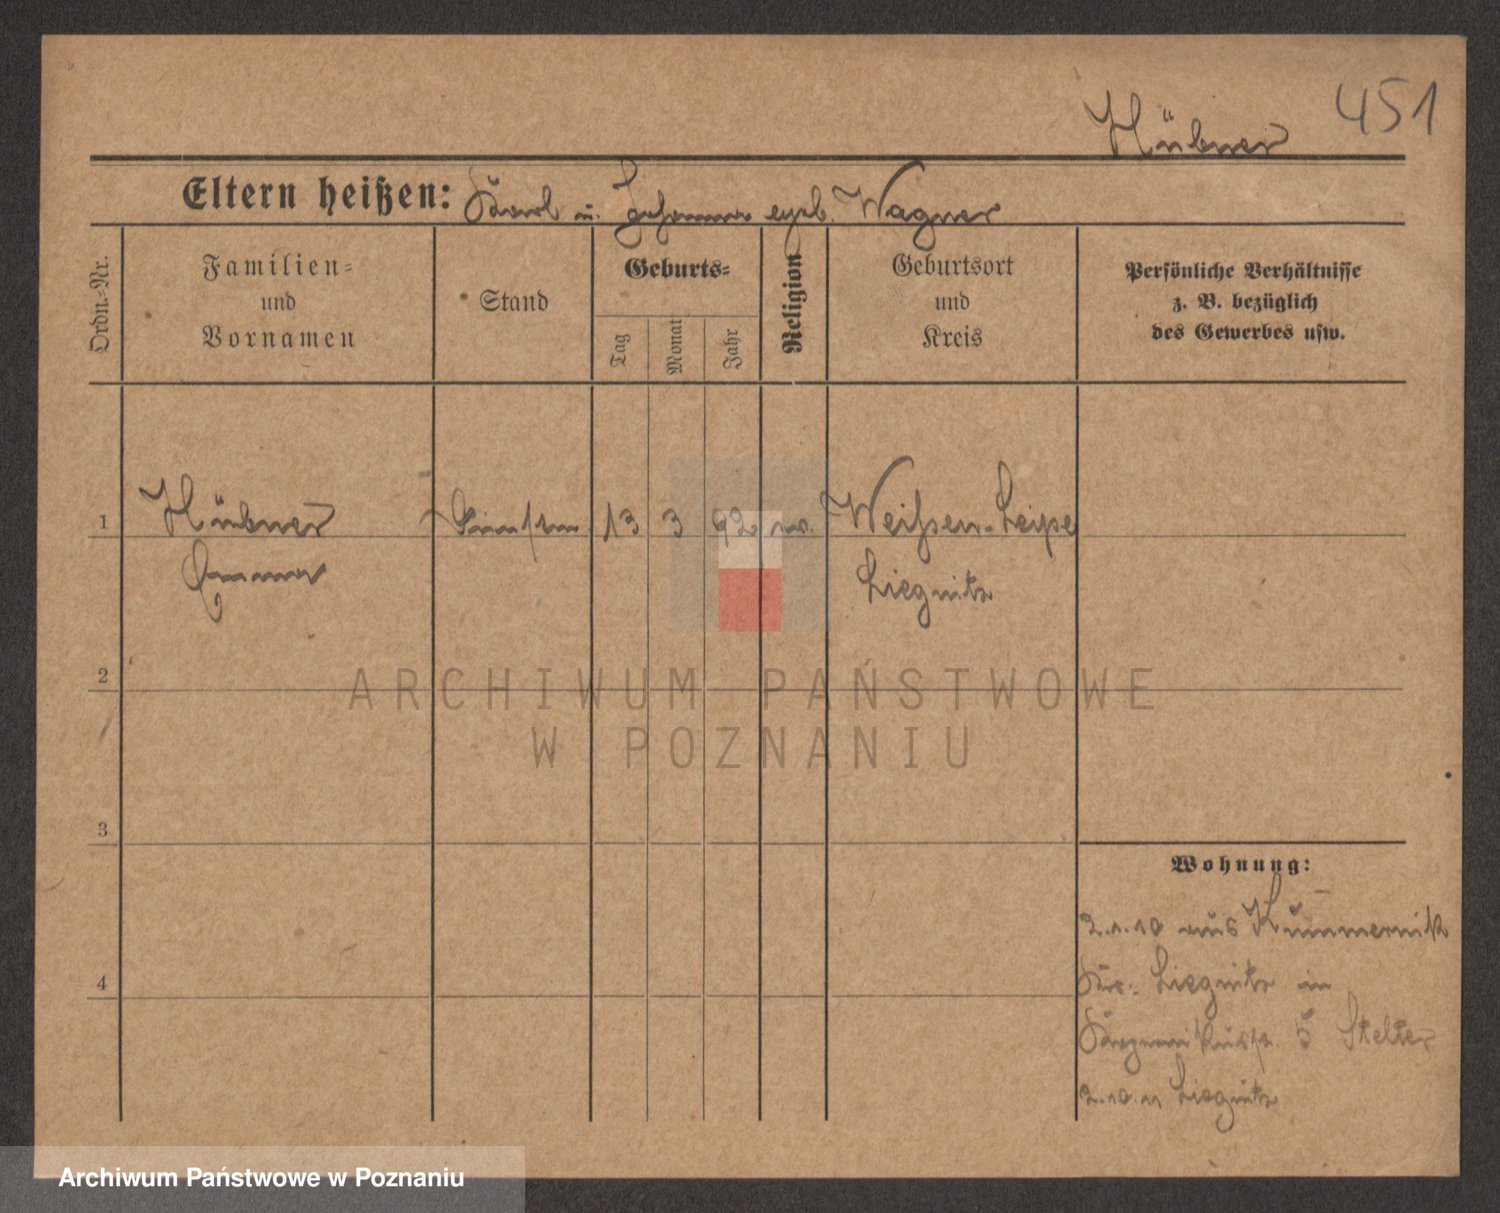 451
Hübner
Eltern heißen: Karl u. Johanna geb. Wagner
Ordn.-Nr.
Familien-
und
Vornamen
Stand
Geburts-
Tag
Monat
Jahr
Religion
Geburtsort
und
Kreis
Persönliche Verhältnisse
z. B. bezüglich
des Gewerbes usw.
1 Hübner 13 3 92 Weißen-Leipe
Emma Liegnitz
ARCHIWUM PAŃSTWOWE
W POZNANIU
2
3
4
Wohnung:
2.1.10 aus Kummernik
Krs. Liegnitz in
5 Stelter
2.10.11 Liegnitz
Archiwum Państwowe w Poznaniu